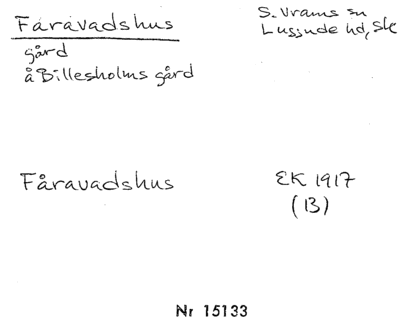 Fåravadshus
gård
å Billesholms gård
S. Vrams sn
Luggude hd, Sk
Fåravadshus
EK 1917
(B)
Nr 15133